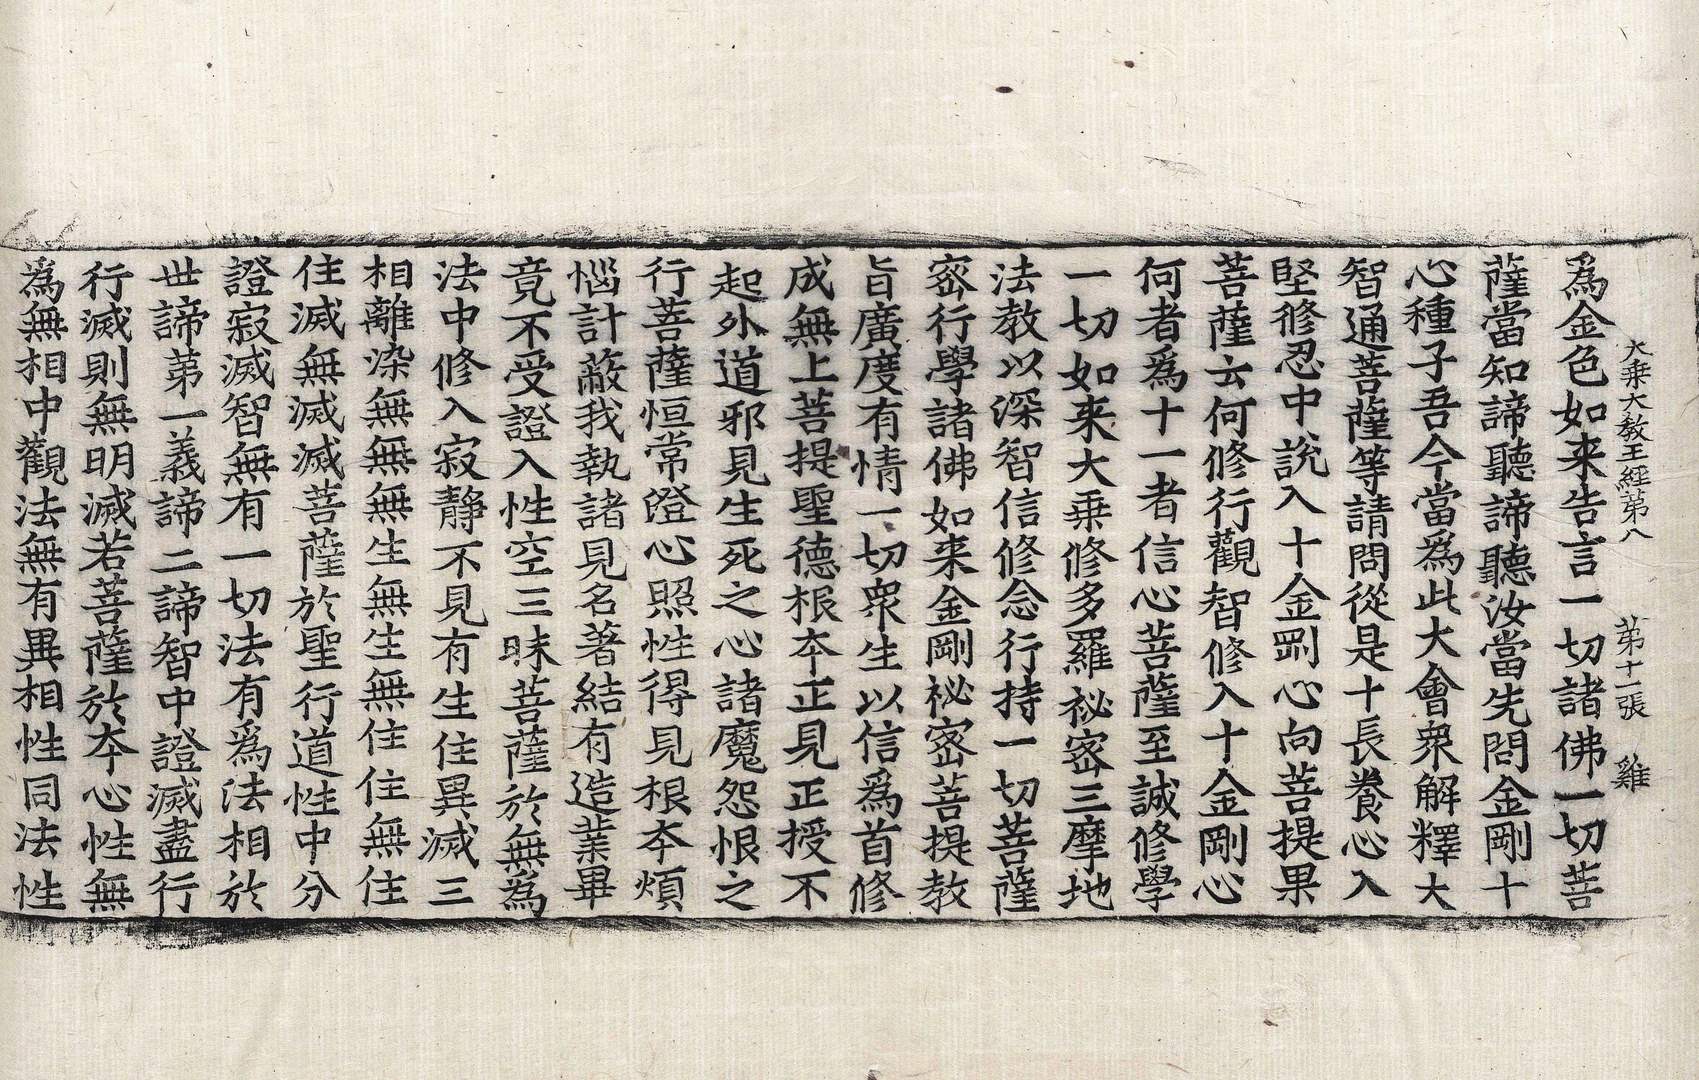 大乗大教王經第八 第十一張 雞
爲金色如来告言一切諸佛一切菩
薩當知諦聽諦聽汝當先問金剛十
心種子吾今當爲此大會衆解釋大
智通菩薩等請問從是十長養心入
堅修忍中說入十金剛心向菩提果
菩薩云何修行觀智修入十金剛心
何者爲十一者信心菩薩至誠修學
一切如来大乗修多羅祕宻三摩地
法教以深智信修念行持一切菩薩
宻行學諸佛如来金剛祕宻菩提教
旨廣度有情一切衆生以信爲首修
成無上菩提聖德根夲正見正授不
起外道邪見生死之心諸魔怨恨之
行菩薩恒常澄心照性得見根夲煩
惱計蔽我執諸見名著結有造業畢
竟不受證入性空三昧菩薩於無為
法中修入寂靜不見有生住異滅三
相離染無無無生無生無住住無住
住滅無滅滅菩薩於聖行道性中分
證寂滅智無有一切法有爲法相於
世諦第一義諦二諦智中證滅盡行
行滅則無明滅若菩薩於夲心性無
爲無相中觀法無有異相性同法性